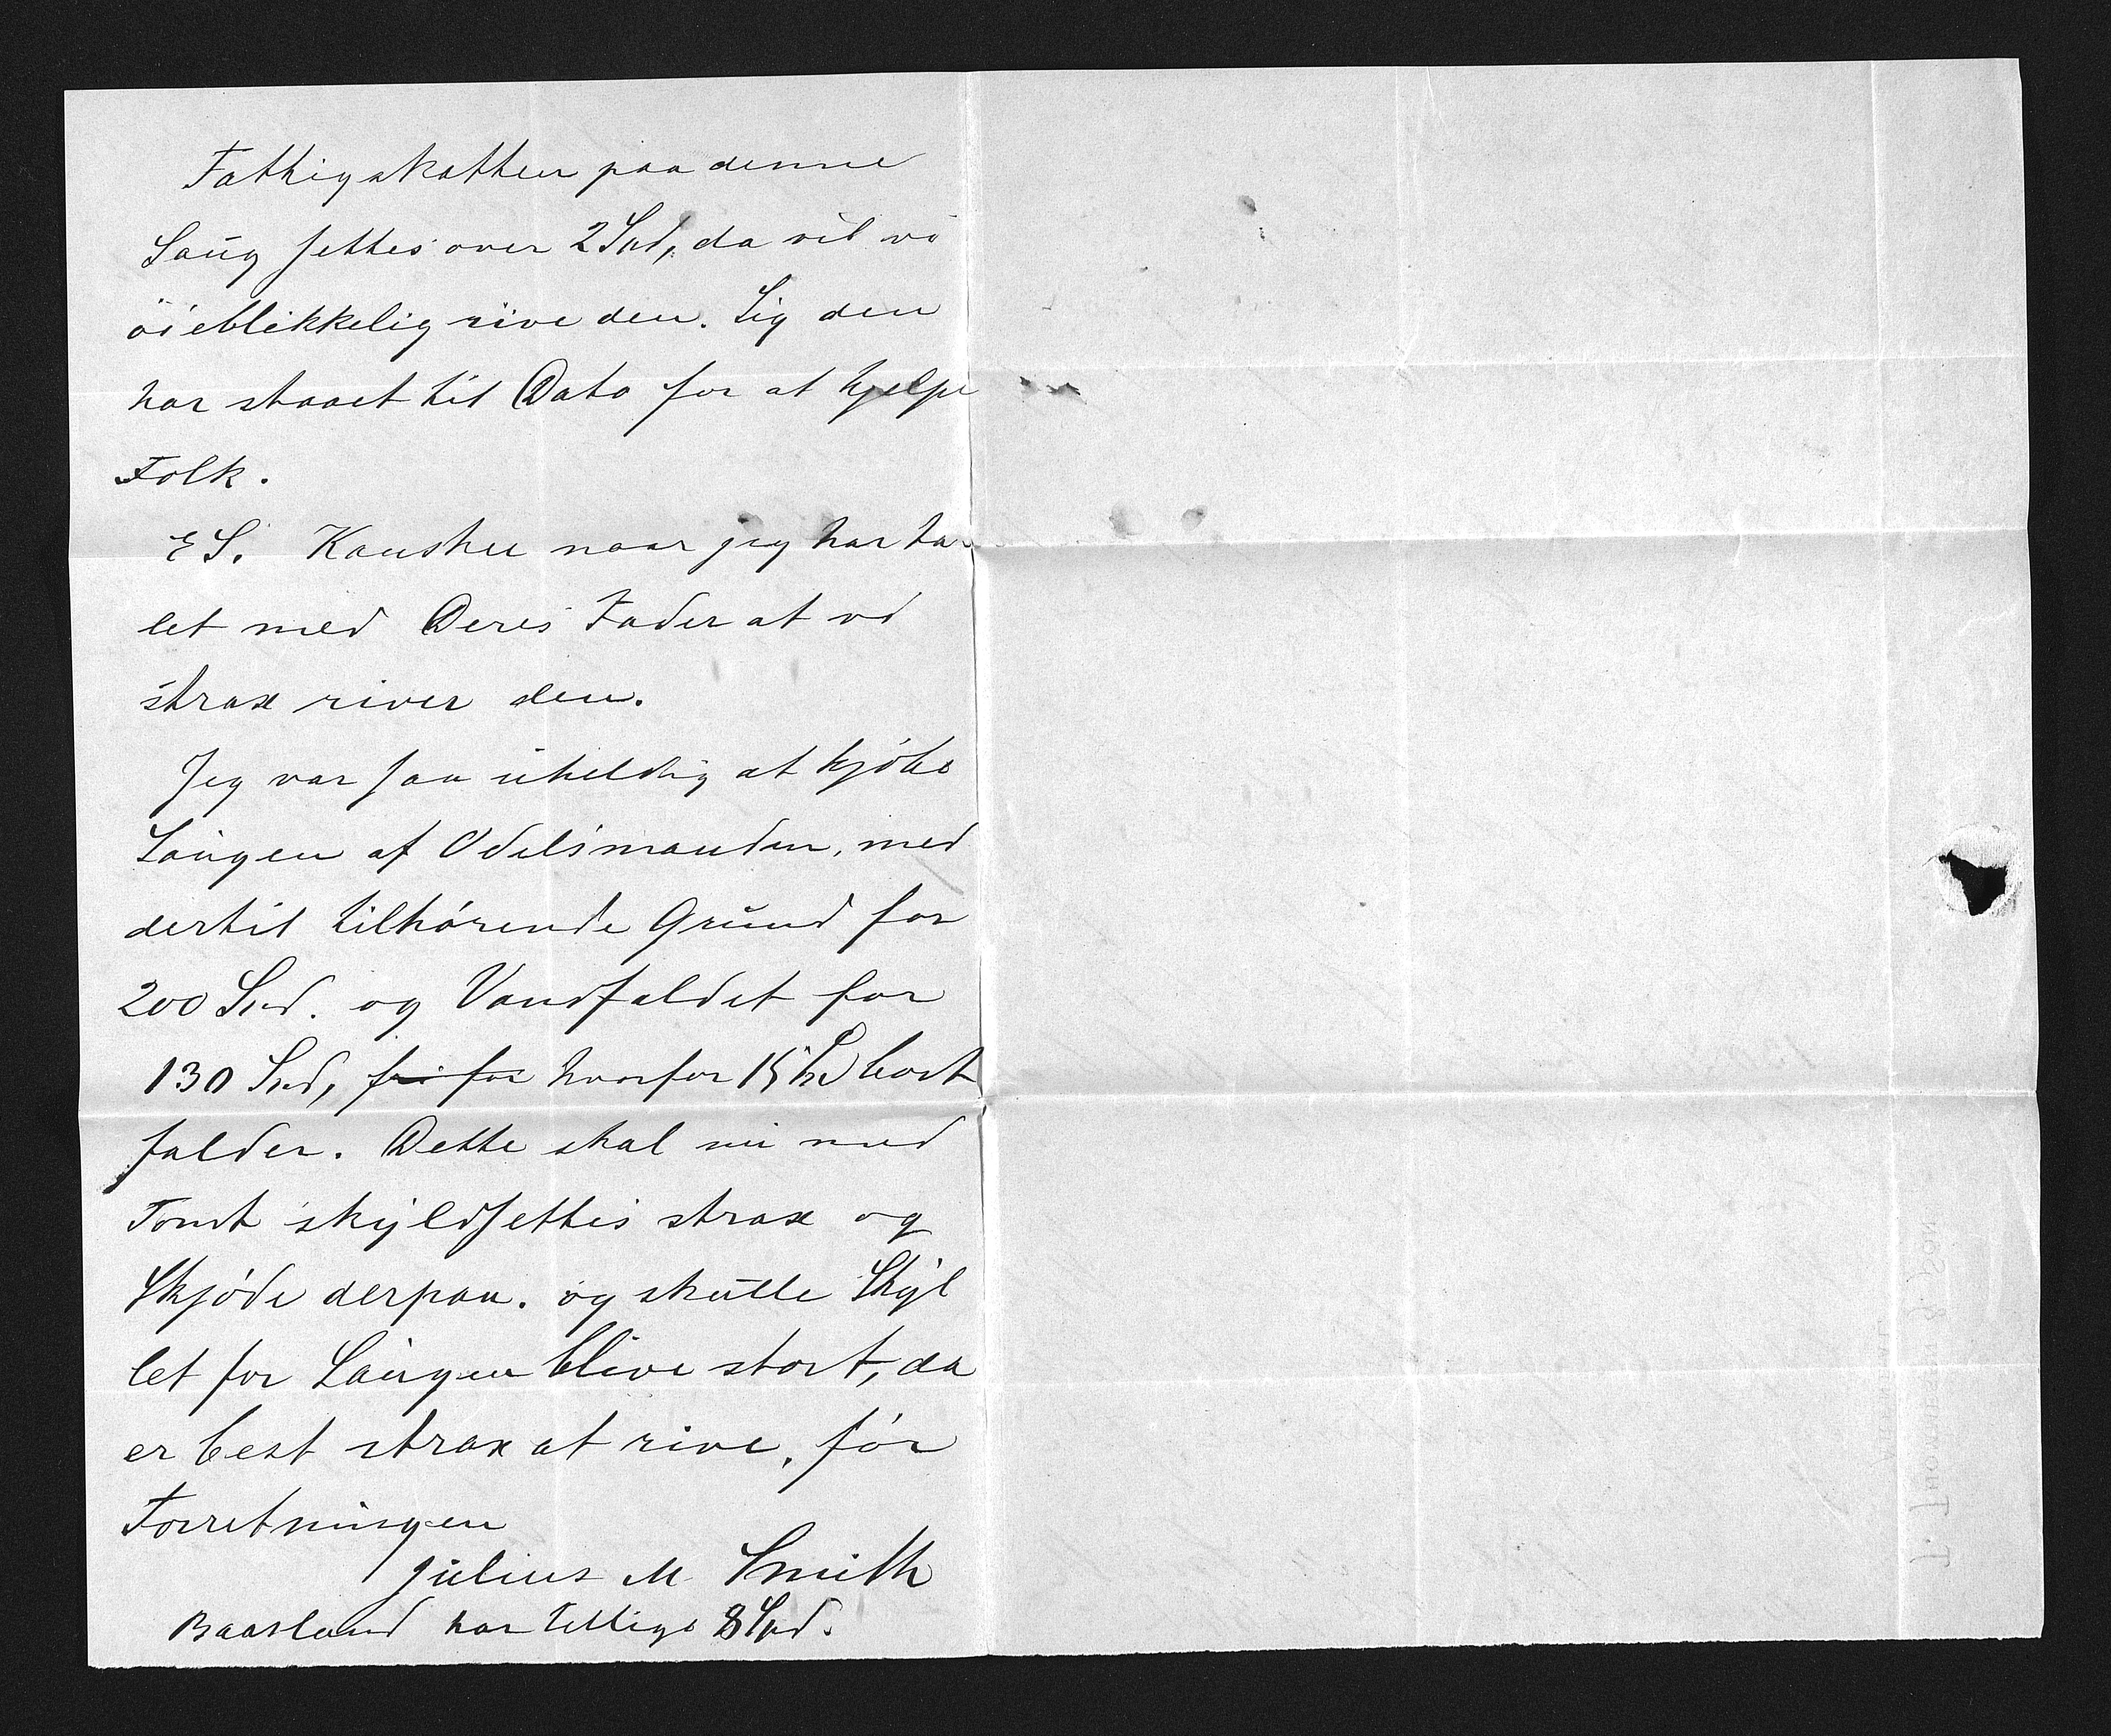 Fattigskatten paa denne
Saug settes over 2 Spd, da vil vi
öieblikkelig rive den. Sig den
har staaet til Dato for at hjelpe
Folk.
ES. Kanskee naar jeg har ta-
let med Deres Fader at vi
strax river den.
Jeg var saa uheldig at kjöbe
Saugen af Odelsmanden, med
dertil tilhörende Grund for
200 Spd. og Vandfaldet for
130 Spd, fri for hvorfor 15 bort
falder. Dette skal nu med
Tomt skyldsettes strax og
Skjöde derpaa. og skulle Skyl
let for Saugen blive stort, da
er best strax at rive, för
Forretningen
Julius M Smith
Baasland har tillige 8 Spd.
J. Thommesen & Sön
Arendal